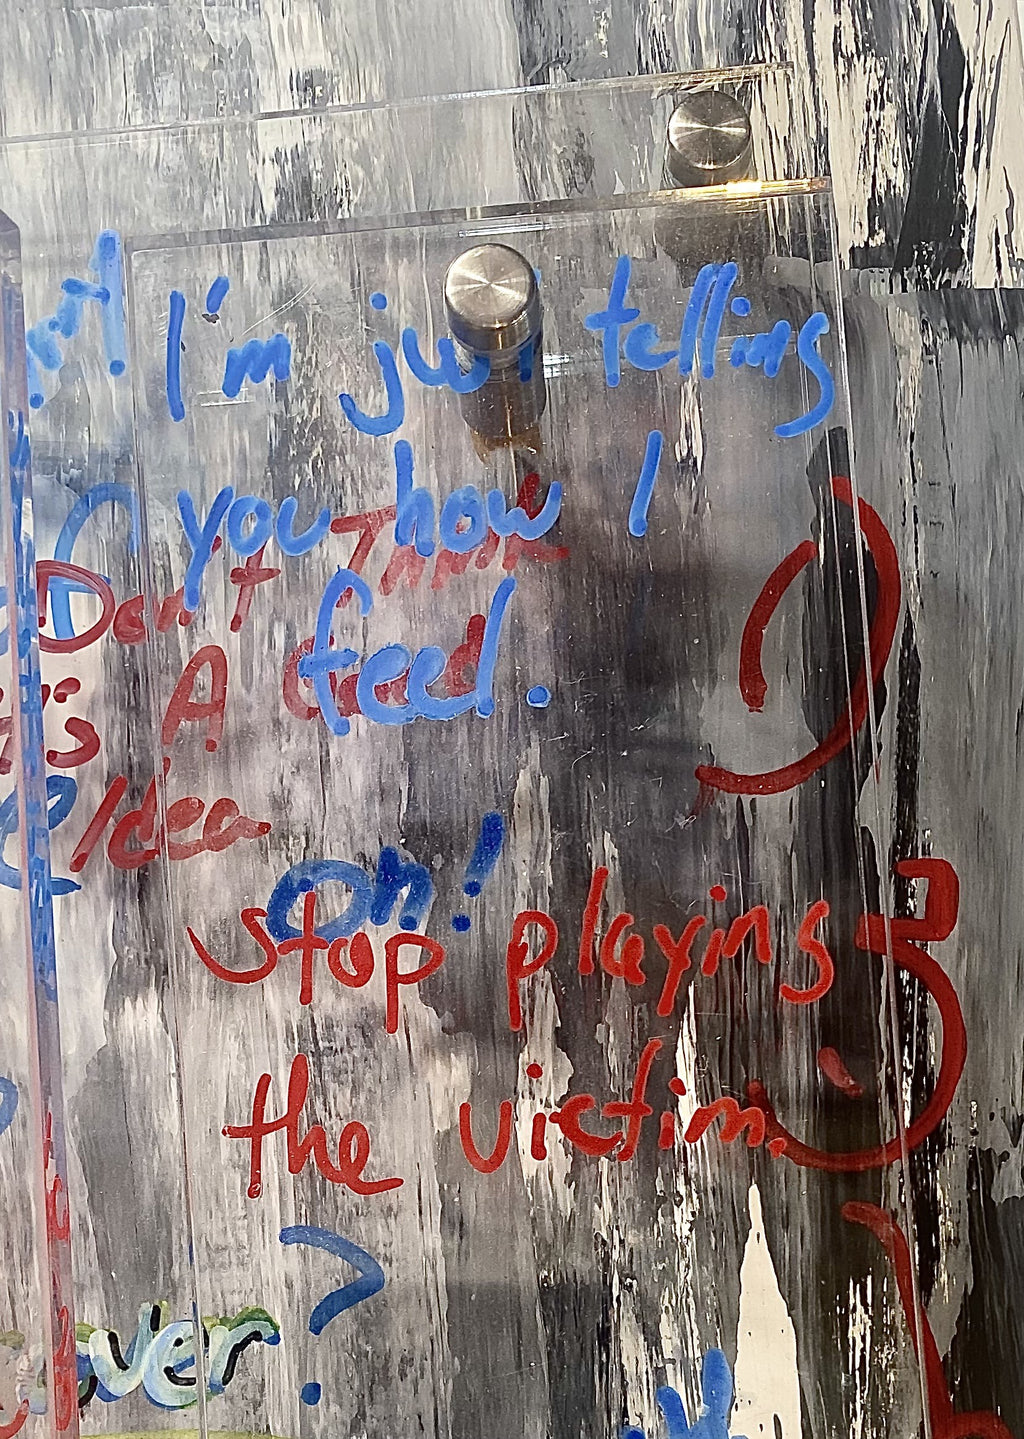 I'm just telling
you how I
feel.
Don't Think
A Good
Idea
oh!
stop playing
the victim.
?